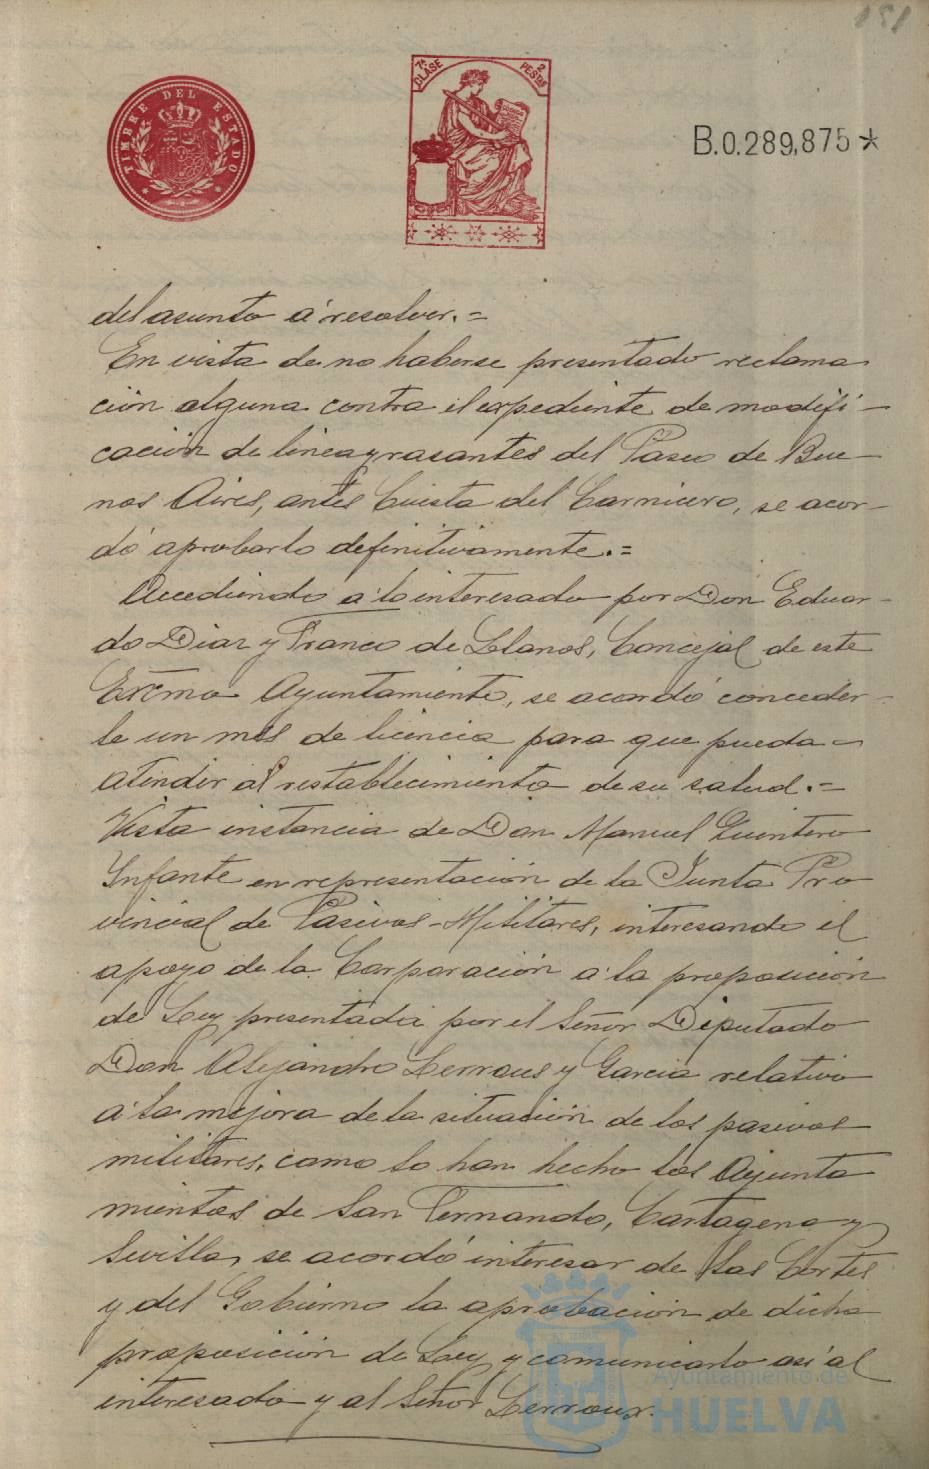 151
TIMBRE DEL ESTADO
7ª CLASE
2 PESTAS
B.0.289,875*
del asunto á resolver.=
En vista de no haberse presentado reclama
ción alguna contra el expediente de modifi-
cación de linea y rasantes del Paseo de Bue-
nos Aires, antes Cuesta del Carnicero, se acor-
dó aprobarlo definitivamente.=
Accediendo a lo interesado por Don Eduar-
do Diaz y Franco de Llanos, Concejal de este
Excmo Ayuntamiento, se acordó conceder-
le un mes de licencia para que pueda-
atender al restablecimiento de su salud.=
Vista instancia de Don Manuel Quintero
Infante en representación de la Junta Pro
vincial de Pasivos-Militares, interesando el
apoyo de la Corporación a la proposición
de Ley presentada por el Señor Diputado
Don Alejandro Lerroux y Garcia relativo
a la mejora de la situación de los pasivos
militares, como lo han hecho los Ayunta
mientos de San Fernando, Cartagena y
Sevilla, se acordó interesar de las Cortes
y del Gobierno la aprobación de dicha
proposición de Ley y comunicarlo asi al
interesado y al Señor Lerroux.
Ayuntamiento de
HUELVA